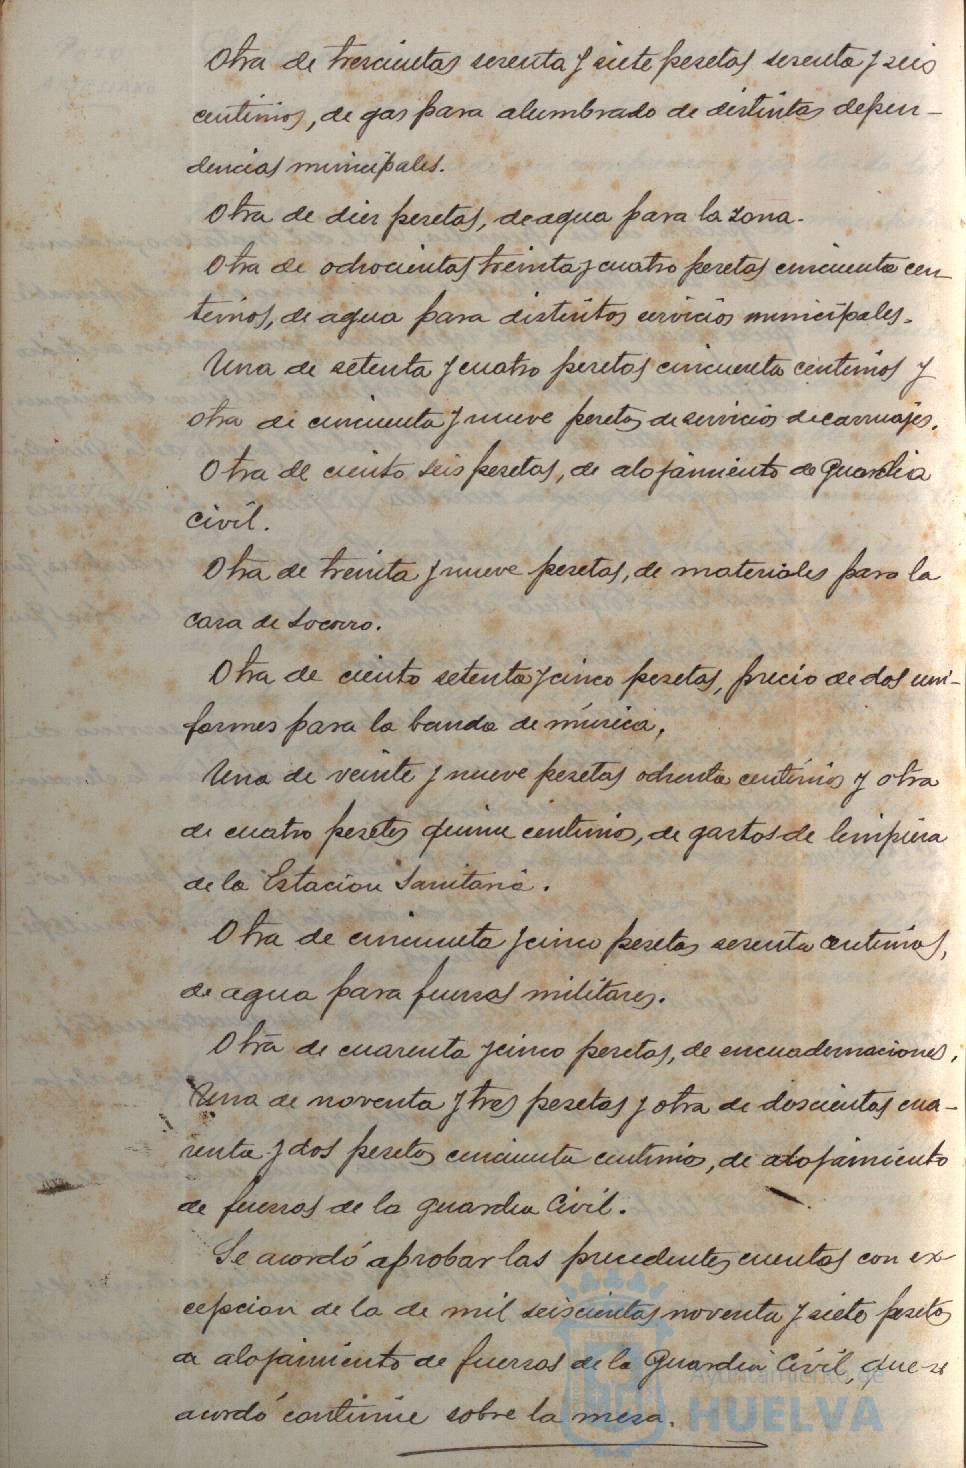 Otra de trescientas sesenta y siete pesetas sesenta y seis
centimos, de gas para alumbrado de distintas depen-
dencias municipales.
Otra de diez pesetas, de agua para la zona.
Otra de ochocientas treinta y cuatro pesetas cincuenta cen-
temos, de agua para distintos servicios municipales.
Una de setenta y cuatro pesetas cincuenta centimos y
otra de cincuenta y nueve pesetas de servicios de carruajes.
Otra de ciento seis pesetas, de alojamiento de Guardia
civil.
Otra de treinta y nueve pesetas, de materiales para la
casa de Socorro.
Otra de ciento setenta y cinco pesetas, precio de dos uni-
formes para la banda de música.
Una de veinte y nueve pesetas ochenta centimos y otra
de cuatro pesetas quince centimos, de gastos de limpieza
de la Estacion Sanitaria.
Otra de cincuenta y cinco pesetas sesenta centimos,
de agua para fuerzas militares.
Otra de cuarenta y cinco pesetas, de encuadernaciones.
Una de noventa y tres pesetas y otra de doscientas cua-
renta y dos pesetas cincuenta centimos, de alojamiento
de fuerzas de la guardia Civil.
Se acordó aprobar las precedentes cuentas con ex-
cepcion de la de mil seiscientas noventa y siete pesetas
de alojamiento de fuerzas de la Guardia Civil, que se
acordó continúe sobre la mesa.
Ayuntamiento de
HUELVA